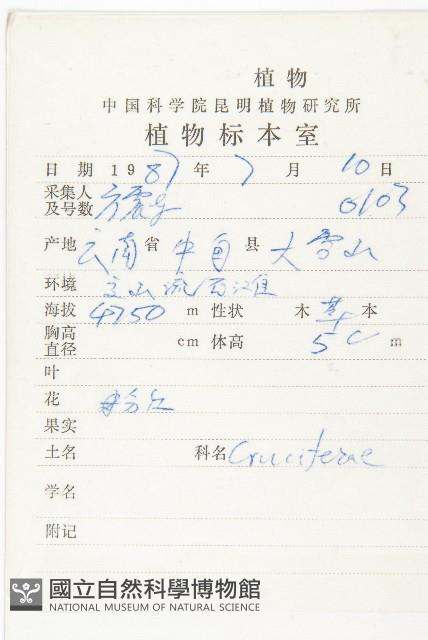 植物
中国科学院昆明植物研究所
植物标本室
日期 1987年 7月 10日
采集人及号数 方震东 0103
产地 云南省 中甸县 大雪山
环境 高山流石滩
海拔 4750 m 性状 木 草 本
胸高直径 cm 体高 5 c m
叶
花 粉红
果实
土名 科名 Cruciferae
学名
附记
國立自然科學博物館
NATIONAL MUSEUM OF NATURAL SCIENCE